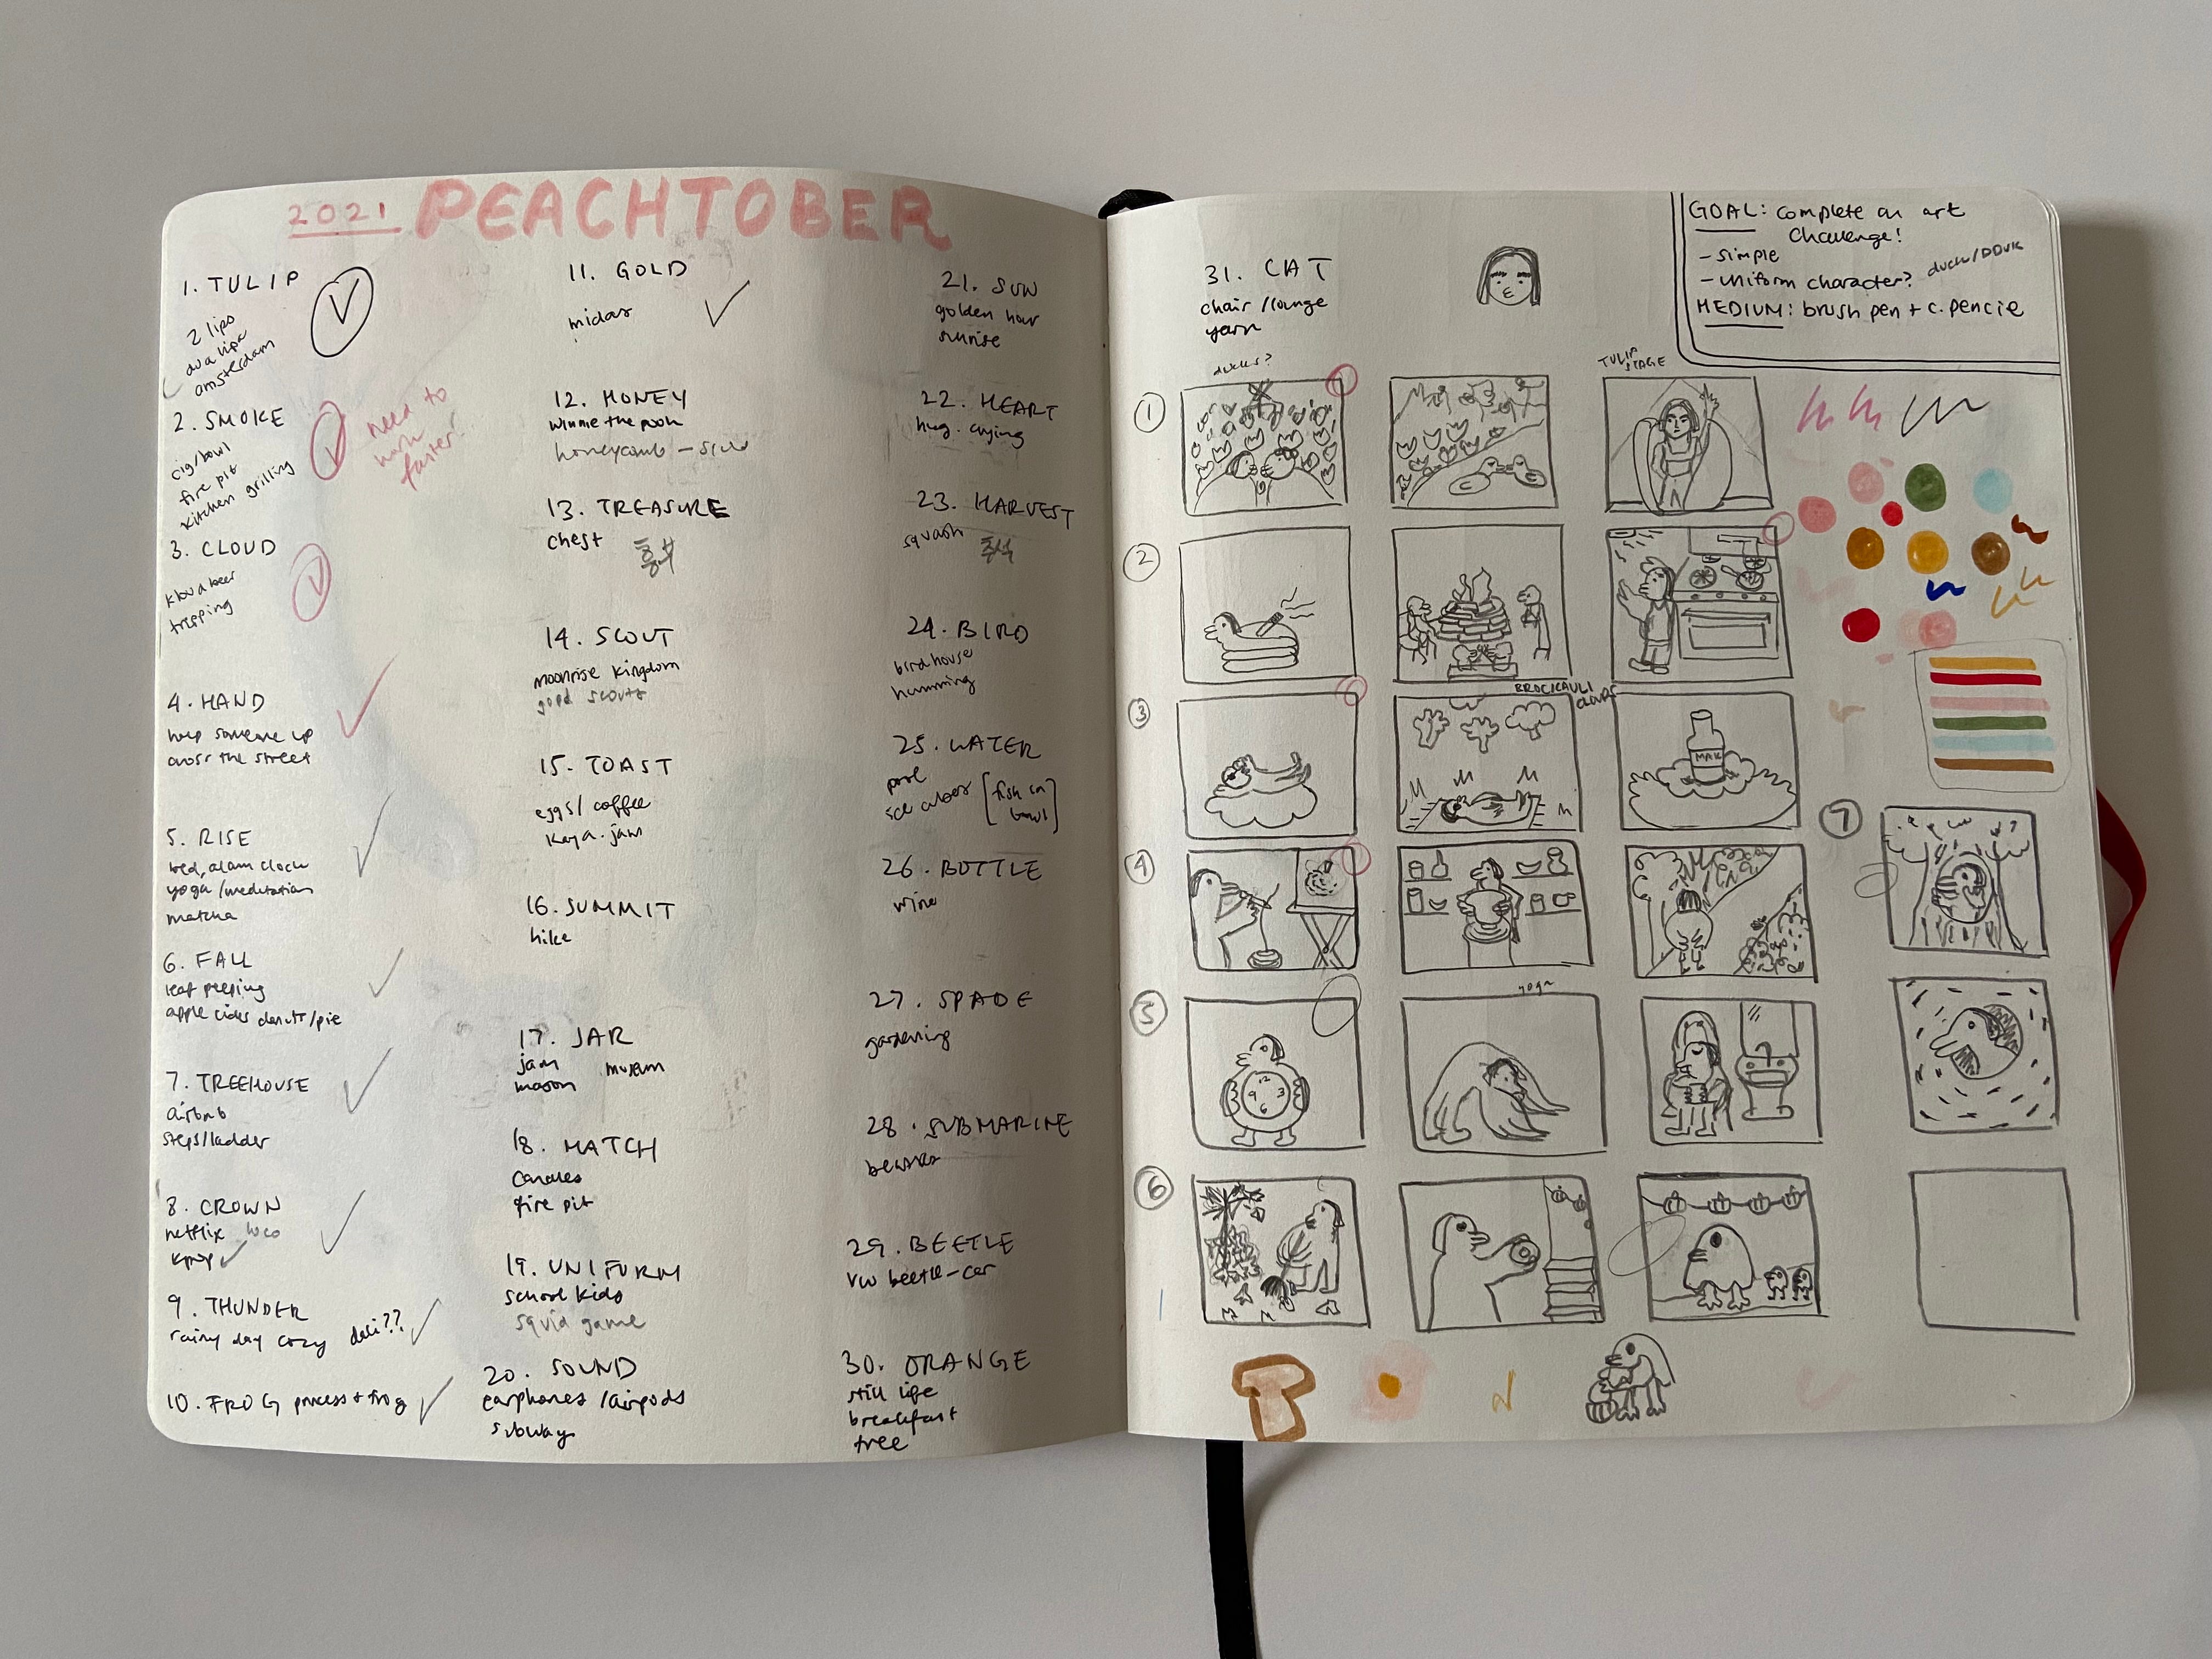 2021 PEACHTOBER
1. TULIP
2 lips
dua lipa
amsterdam
2. SMOKE
cig/bowl
fire pit
kitchen grilling
need to
work
faster!
3. CLOUD
tripping
4. HAND
help someone up
across the street
5. RISE
bed, alarm clock
yoga/meditation
matcha
6. FALL
leaf peeping
apple cider donut/pie
7. TREEHOUSE
airbnb
steps/ladder
8. CROWN
netflix
9. THUNDER
rainy day cozy dali??
10. FROG princess + frog
11. GOLD
midas
12. HONEY
winnie the pooh
honeycomb -
13. TREASURE
chest
14. SCOUT
moonrise kingdom
good scouts
15. TOAST
eggs/coffee
kaya jam
16. SUMMIT
hike
17. JAR
jam museum
mason
18. MATCH
candles
fire pit
19. UNIFORM
school kids
squid game
20. SOUND
earphones/airpods
subway
21. SUN
golden hour
sunrise
22. HEART
hug. crying
23. HARVEST
squash 추석
24. BIRD
birdhouse
humming
25. WATER
pool
ice cubes [fish in
bowl]
26. BOTTLE
wine
27. SPADE
gardening
28. SUBMARINE
29. BEETLE
vw beetle-car
30. ORANGE
still life
breakfast
tree
31. CAT
chair/lounge
yarn
GOAL: complete an art
challenge!
- simple
- uniform character? duck/DDUK
MEDIUM: brush pen + c. pencil
ducks?
TULIP
STAGE
1
2
3
BROCCAULI
CLOUDS
4
5
yoga
12
9 3
6
6
7